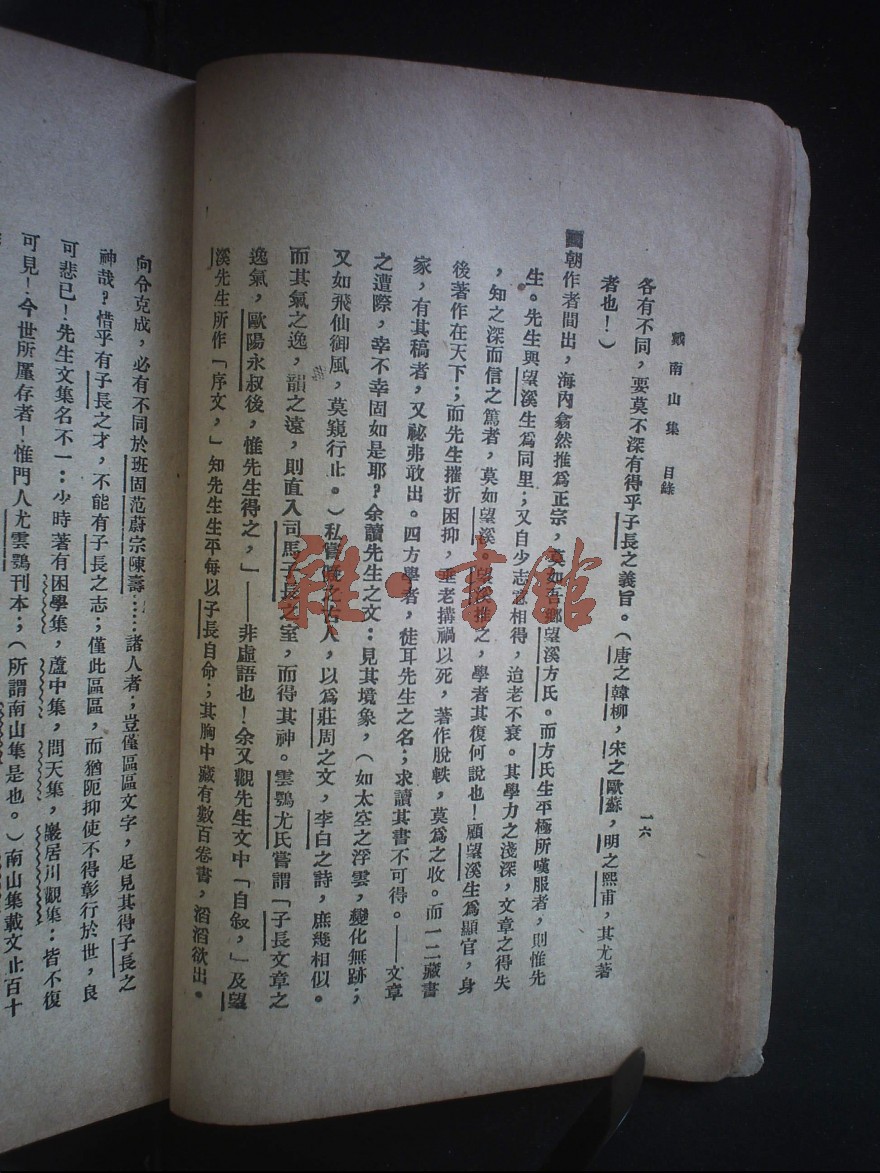 戴南山集 目錄
一六
各有不同，要莫不深有得乎子長之義旨。（唐之韓柳，宋之歐蘇，明之熙甫，其尤著
者也！）
國朝作者間出，海內翕然推爲正宗，莫如吾鄉望溪方氏。而方氏生平極所嘆服者，則惟先
生。先生與望溪生爲同里；又自少志意相得，迨老不衰。其學力之淺深，文章之得失
，知之深而信之篤者，莫如望溪。望溪推之，學者其復何說也！顧望溪生爲顯官，身
後著作在天下；而先生摧折困抑，垂老搆禍以死，著作脫軼，莫爲之收。而一二藏書
家，有其稿者，又祕弗敢出。四方學者，徒耳先生之名；求讀其書不可得。——文章
之遭際，幸不幸固如是耶？余讀先生之文：見其境象，（如太空之浮雲，變化無跡；
又如飛仙御風，莫窺行止。）私嘗慨之古人，以爲莊周之文，李白之詩，庶幾相似。
而其氣之逸，韻之遠，則直入司馬子長之室，而得其神。雲鶚尤氏嘗謂「子長文章之
逸氣，歐陽永叔後，惟先生得之，」——非虛語也！余又觀先生文中「自叙，」及望
溪先生所作「序文，」知先生生平每以子長自命；其胸中藏有數百卷書，滔滔欲出。
向令克成，必有不同於班固范蔚宗陳壽……諸人者；豈僅區區文字，足見其得子長之
神哉？惜乎有子長之才，不能有子長之志；僅此區區，而猶阨抑使不得彰行於世，良
可悲已！先生文集名不一：少時著有困學集，蘆中集，問天集，巖居川觀集：皆不復
可見！今世所廑存者！惟門人尤雲鶚刊本；（所謂南山集是也。）南山集載文止百十
雜·書館